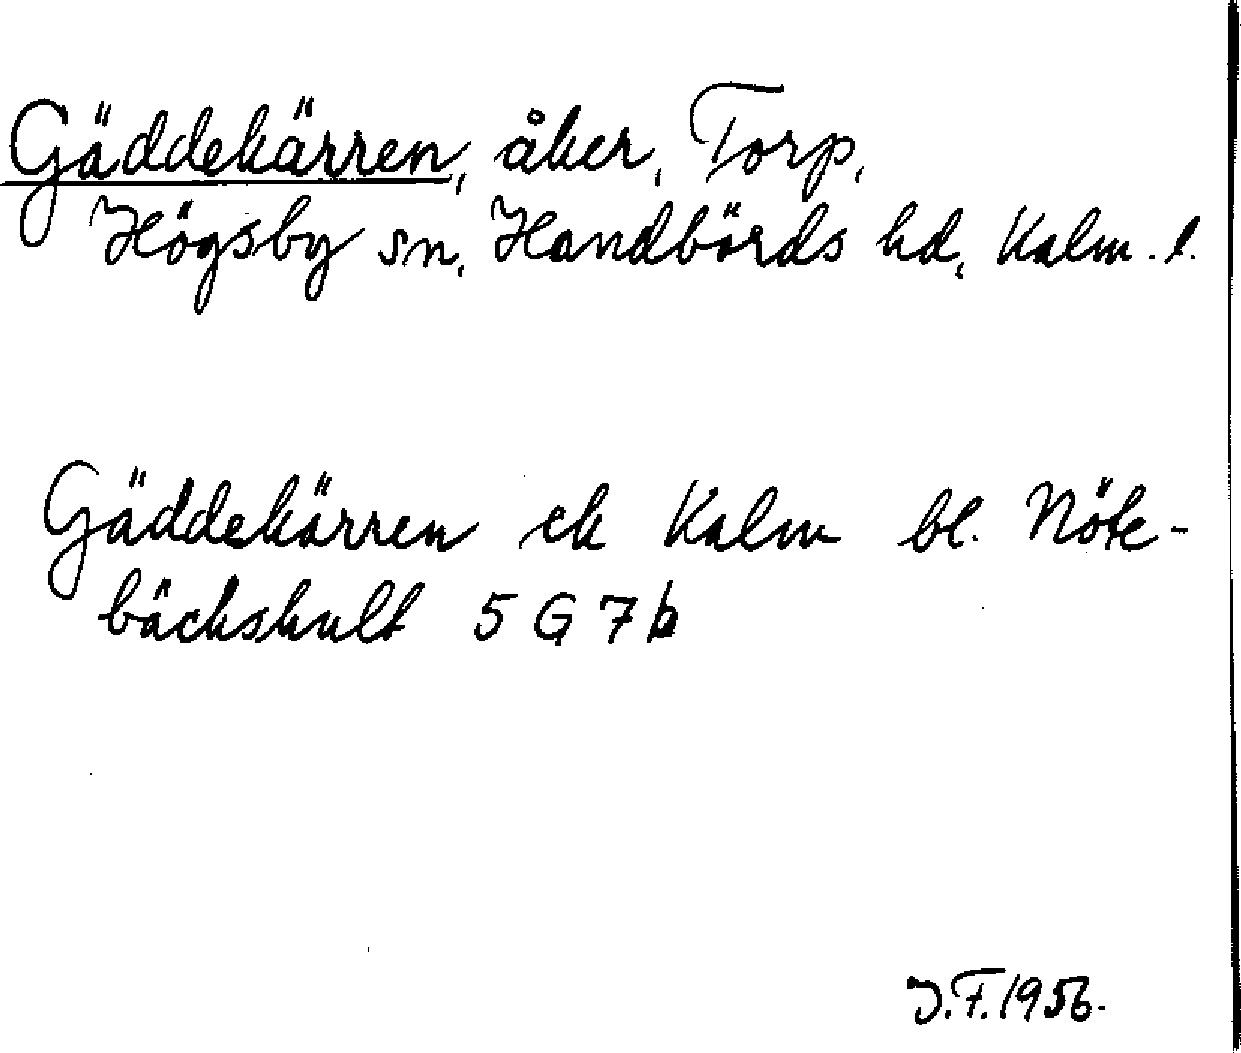 Gäddekärren, åker, Torp,
Högsby sn, Handbörds hd, Kalm. l.
Gäddekärren ek Kalm bl. Nöte-
bäckshult 5 G 7 b
J.F. 1956.